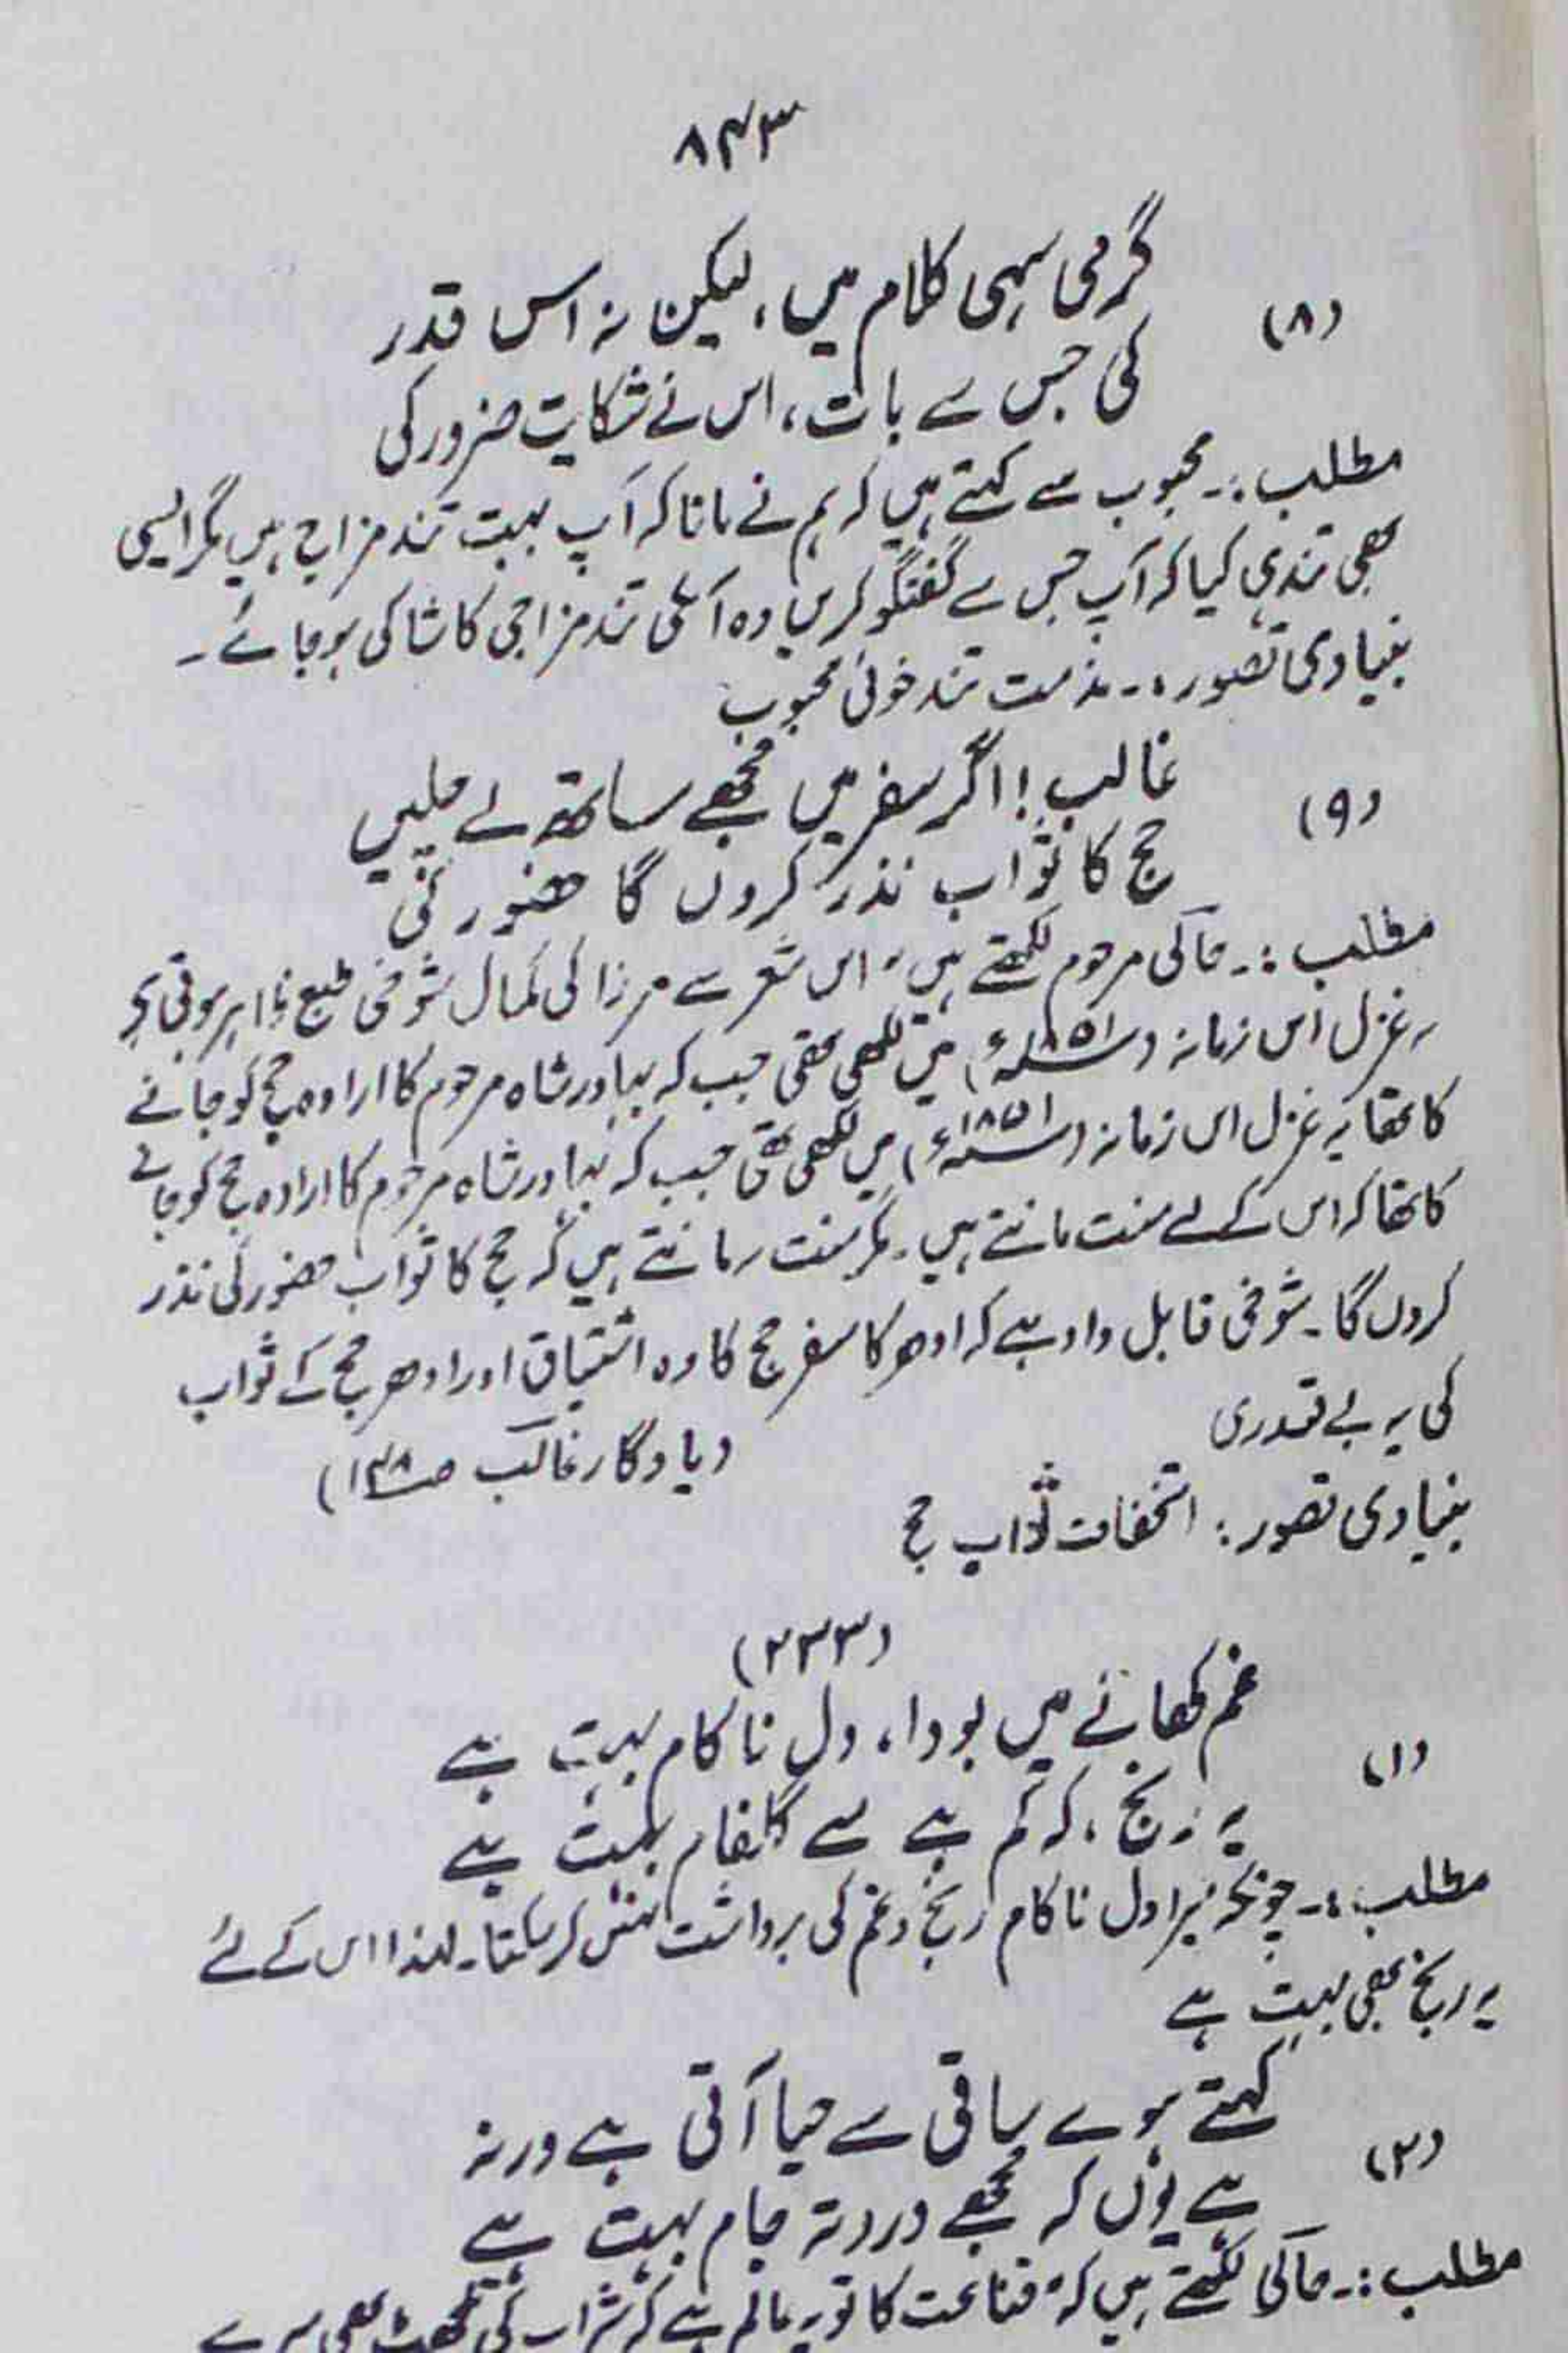 ۸۴۳
(۸)
گرمی سہی کلام میں، لیکن نہ اس قدر
کی جس سے بات، اس نے شکایت ضرور کی
مطلب :۔ محبوب سے کہتے ہیں کہ ہم نے مانا کہ آپ بہت تند مزاج ہیں مگر ایسی
بھی تندی کیا کہ آپ جس سے گفتگو کریں وہ آپکی تند مزاجی کا شاکی ہو جائے۔
بنیادی تصور :۔ مذمت تند خوئی محبوب
(۹)
غالب! اگر سفر میں مجھے ساتھ لے چلیں
حج کا ثواب نذر کروں گا حضور کی
مطلب :۔ حالی مرحوم لکھتے ہیں، اس شعر سے مرزا کی کمال شوخی طبع ظاہر ہوتی ہے
یہ غزل اس زمانہ (۱۸۵۱ء) میں لکھی تھی جب کہ بہادر شاہ مرحوم کا ارادہ حج کو جانے
کا تھا یہ غزل اس زمانہ (۱۸۵۱ء) میں لکھی تھی جب کہ بہادر شاہ مرحوم کا ارادہ حج کو جانے
کا تھا کہ اس کے لے منت مانتے ہیں۔ مگر منت یہ مانتے ہیں کہ حج کا ثواب حضور کی نذر
کروں گا۔ شوخی قابل داد ہے کہ ادھر کا سفر حج کا وہ اشتیاق اور ادھر حج کے ثواب
کی یہ بے قدری
(یادگار غالب ص۱۴۸)
بنیادی تصور : استخفاف ثواب حج
(۲۳۳)
(۱)
غم کھانے میں بودا، دل ناکام بہت ہے
یہ رنج، کہ کم ہے مے گلفام بہت ہے
مطلب :۔ چونکہ میرا دل ناکام رنج و غم کی برداشت نہیں کر سکتا۔ لہٰذا اس کے لئے
یہ رنج بھی بہت ہے
(۲)
کہتے ہوے ساقی سے حیا آتی ہے ورنہ
ہے یوں کہ مجھے درد تہ جام بہت ہے
مطلب :۔ حالی لکھتے ہیں کہ قناعت کا تو یہ عالم ہے کہ شراب کی تلچھٹ بھی میرے